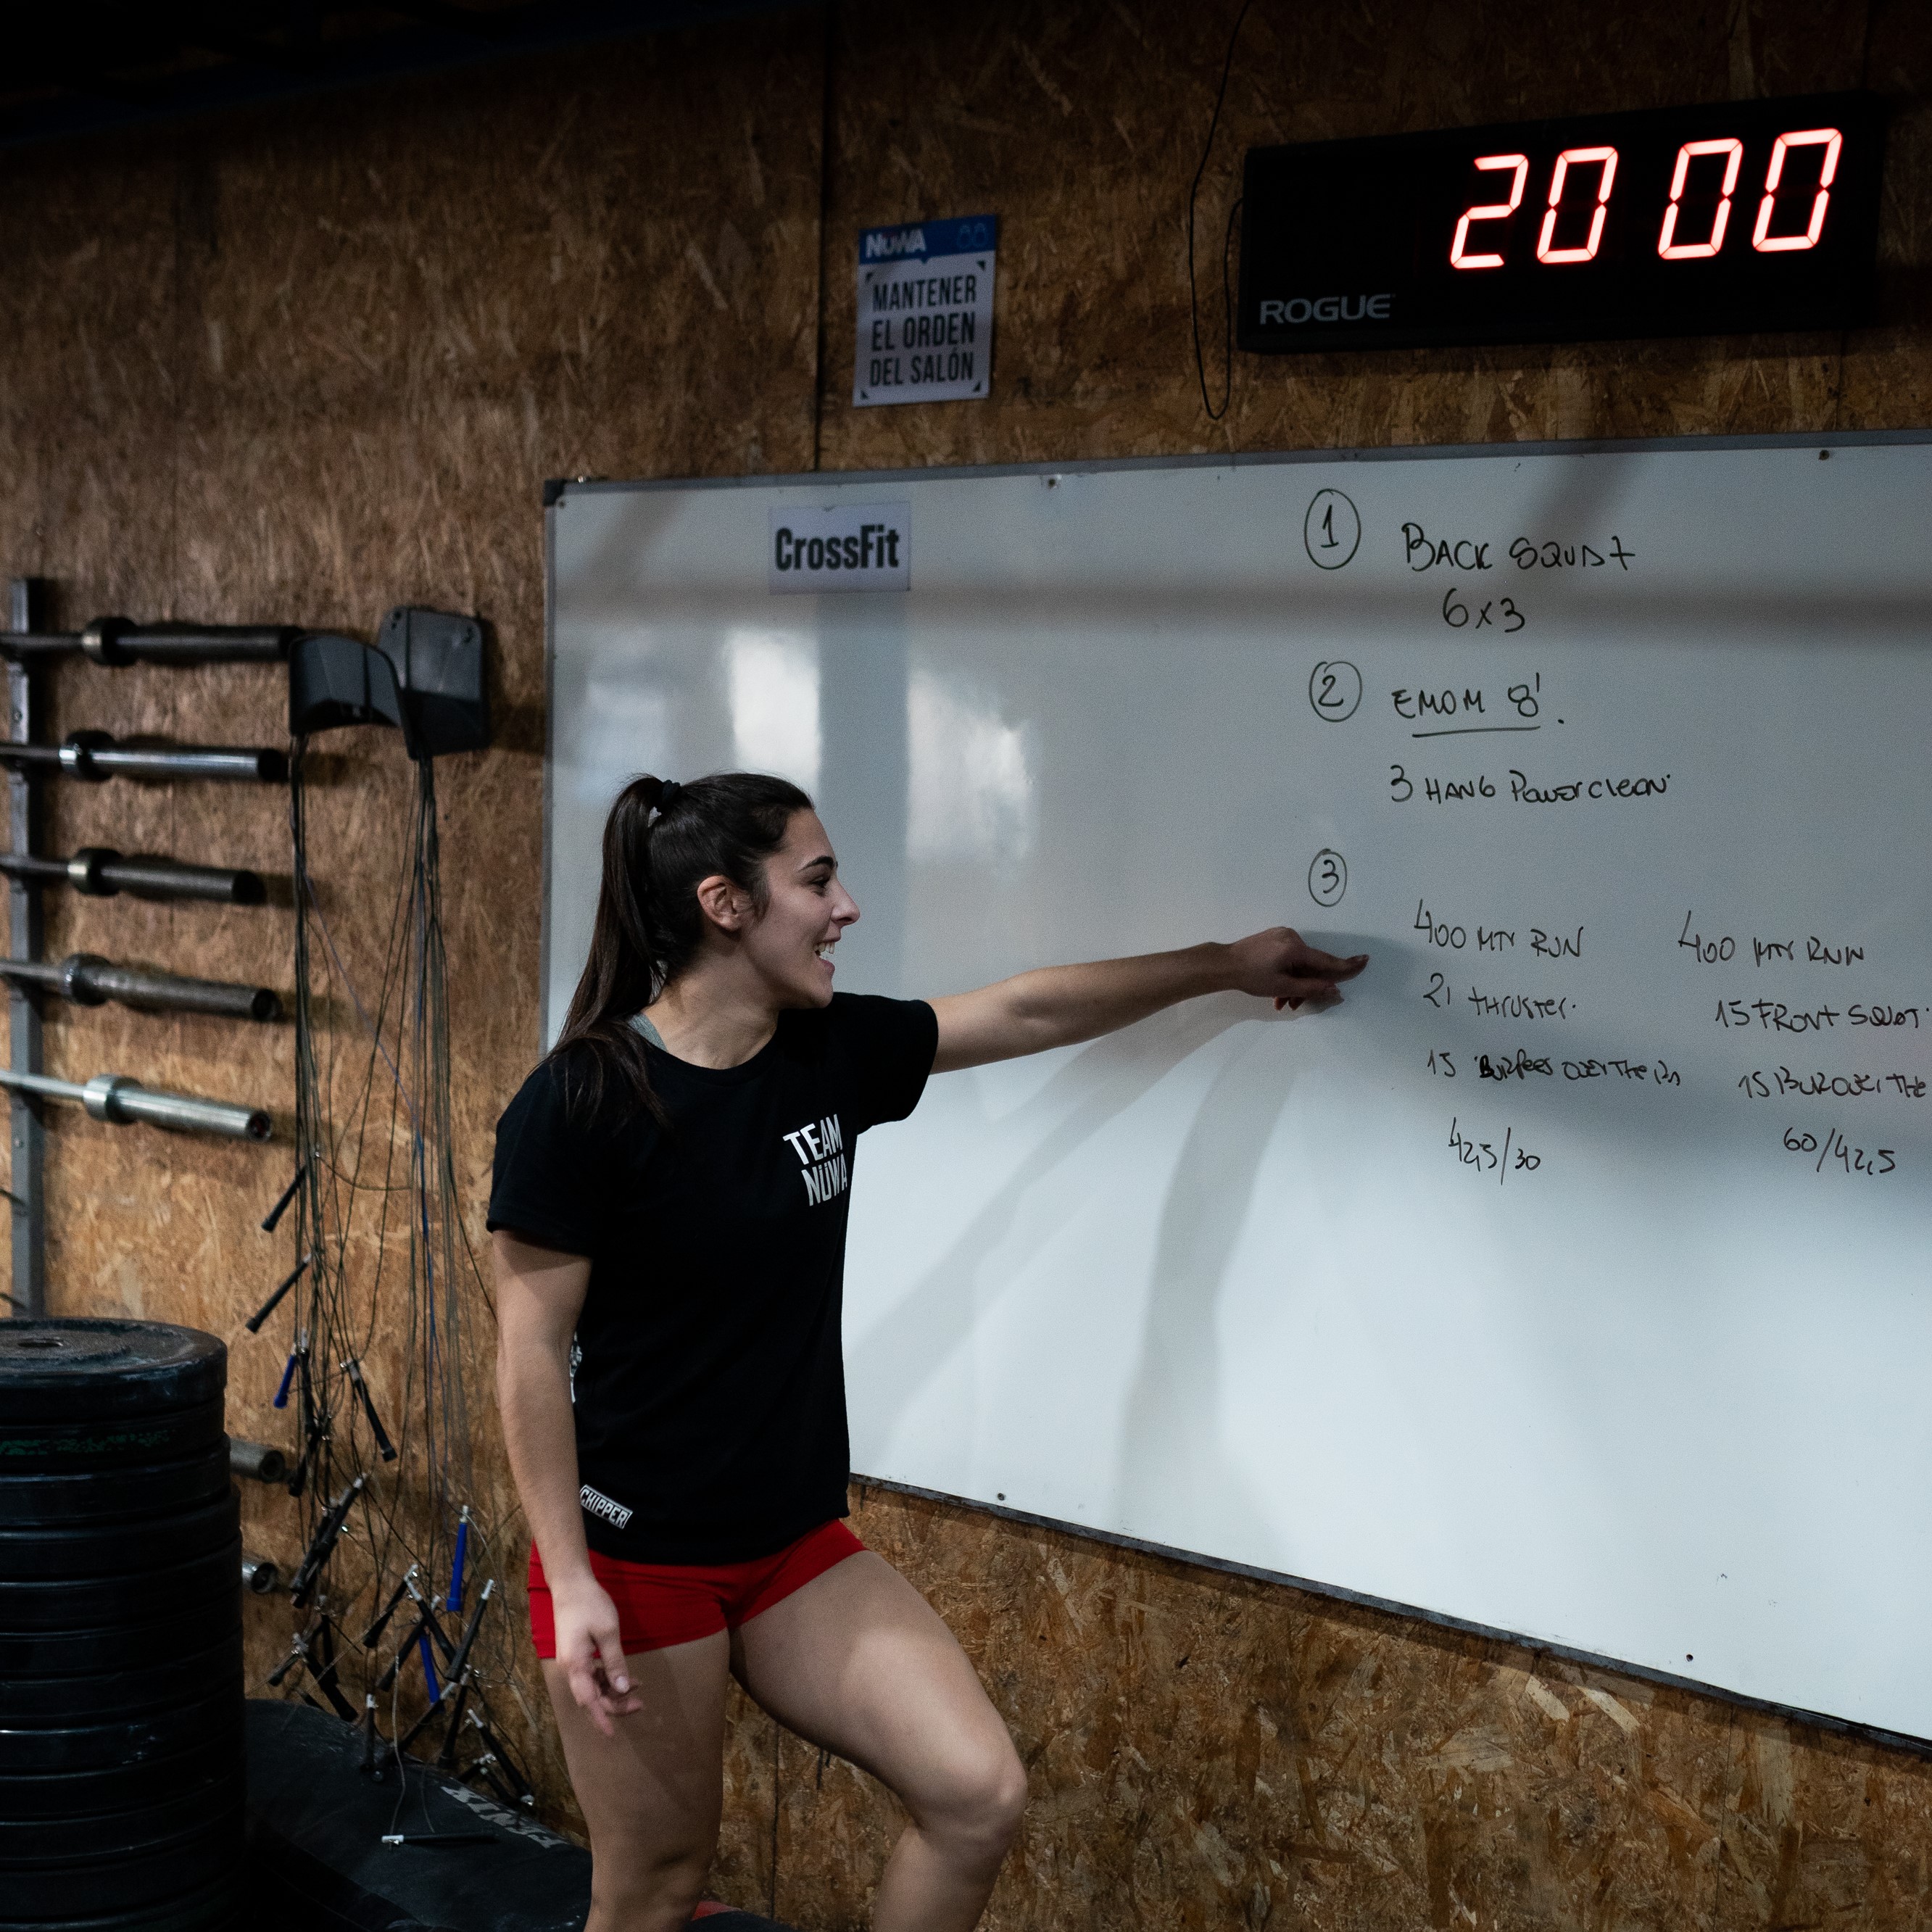 20 00
ROGUE
NÜWA
MANTENER
EL ORDEN
DEL SALÓN
CrossFit
1 BACK SQUAT
6x3
2 EMOM 8'.
3 HANG Power clean
3
400 MTR RUN
21 THruster.
15 Burpees OVER THE
42,5/30
400 MTR RUN
15 FRONT SQUAT
15 BUR OVER THE
60/42,5
TEAM
NÜWA
CHIPPER